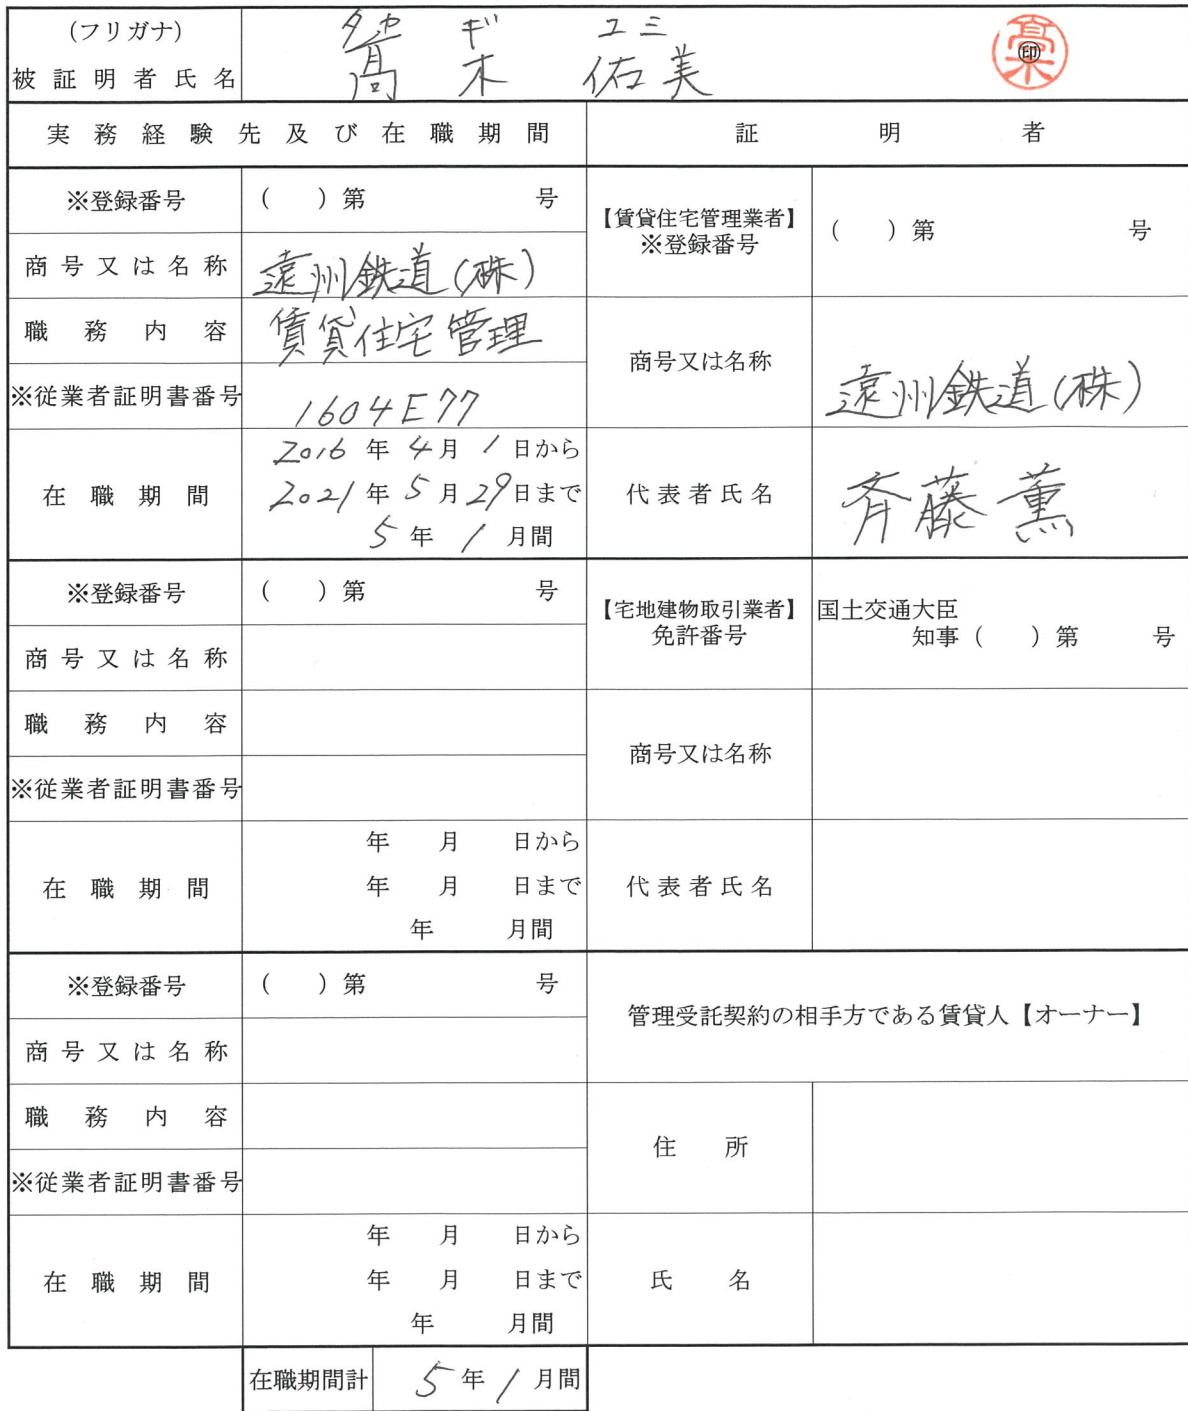 (フリガナ) タカ ギ ユミ
被証明者氏名 髙木 佑美 ㊞
実務経験先及び在職期間 証明者
※登録番号 ( )第 号
商号又は名称 遠州鉄道(株)
職務内容 賃貸住宅管理
※従業者証明書番号 1604E77
在職期間 2016年4月1日から
2021年5月29日まで
5年1月間
【賃貸住宅管理業者】
※登録番号 ( )第 号
商号又は名称 遠州鉄道(株)
代表者氏名 斉藤薫
※登録番号 ( )第 号
商号又は名称
職務内容
※従業者証明書番号
在職期間 年 月 日から
年 月 日まで
年 月間
【宅地建物取引業者】 国土交通大臣
免許番号 知事( )第 号
商号又は名称
代表者氏名
※登録番号 ( )第 号
商号又は名称
職務内容
※従業者証明書番号
在職期間 年 月 日から
年 月 日まで
年 月間
管理受託契約の相手方である賃貸人【オーナー】
住所
氏名
在職期間計 5年1月間